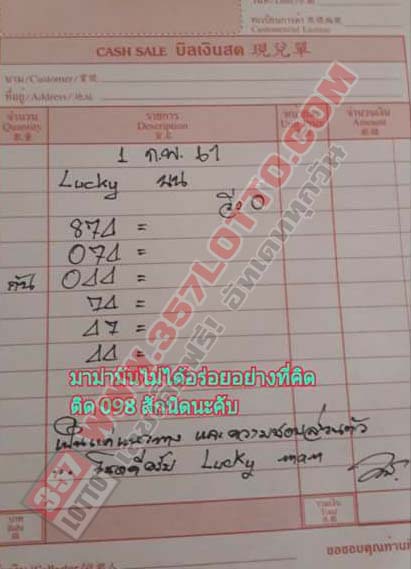 ทะเบียนการค้า
Commercial License
CASH SALE บิลเงินสด 現兌單
นาม/Customer/寶號
ที่อยู่/Address/地址
จำนวน Quantity 數量 รายการ Description 貨名 จำนวนเงิน Amount 銀碼
1 ก.พ. 67
Lucky บน
วิ่ง 0
874 =
074 =
กัน 044 =
74 =
47 =
44 =
มาม่ามันไม่ได้อร่อยอย่างที่คิด
ติด 098 สักนิดนะคับ
เป็นแค่แนวทาง และความชอบส่วนตัว
... โชคดีครับ Lucky man
บาท รวมเงิน Total
ขอขอบคุณท่านที่
WWW.357LOTTO.COM
357
LOTTO